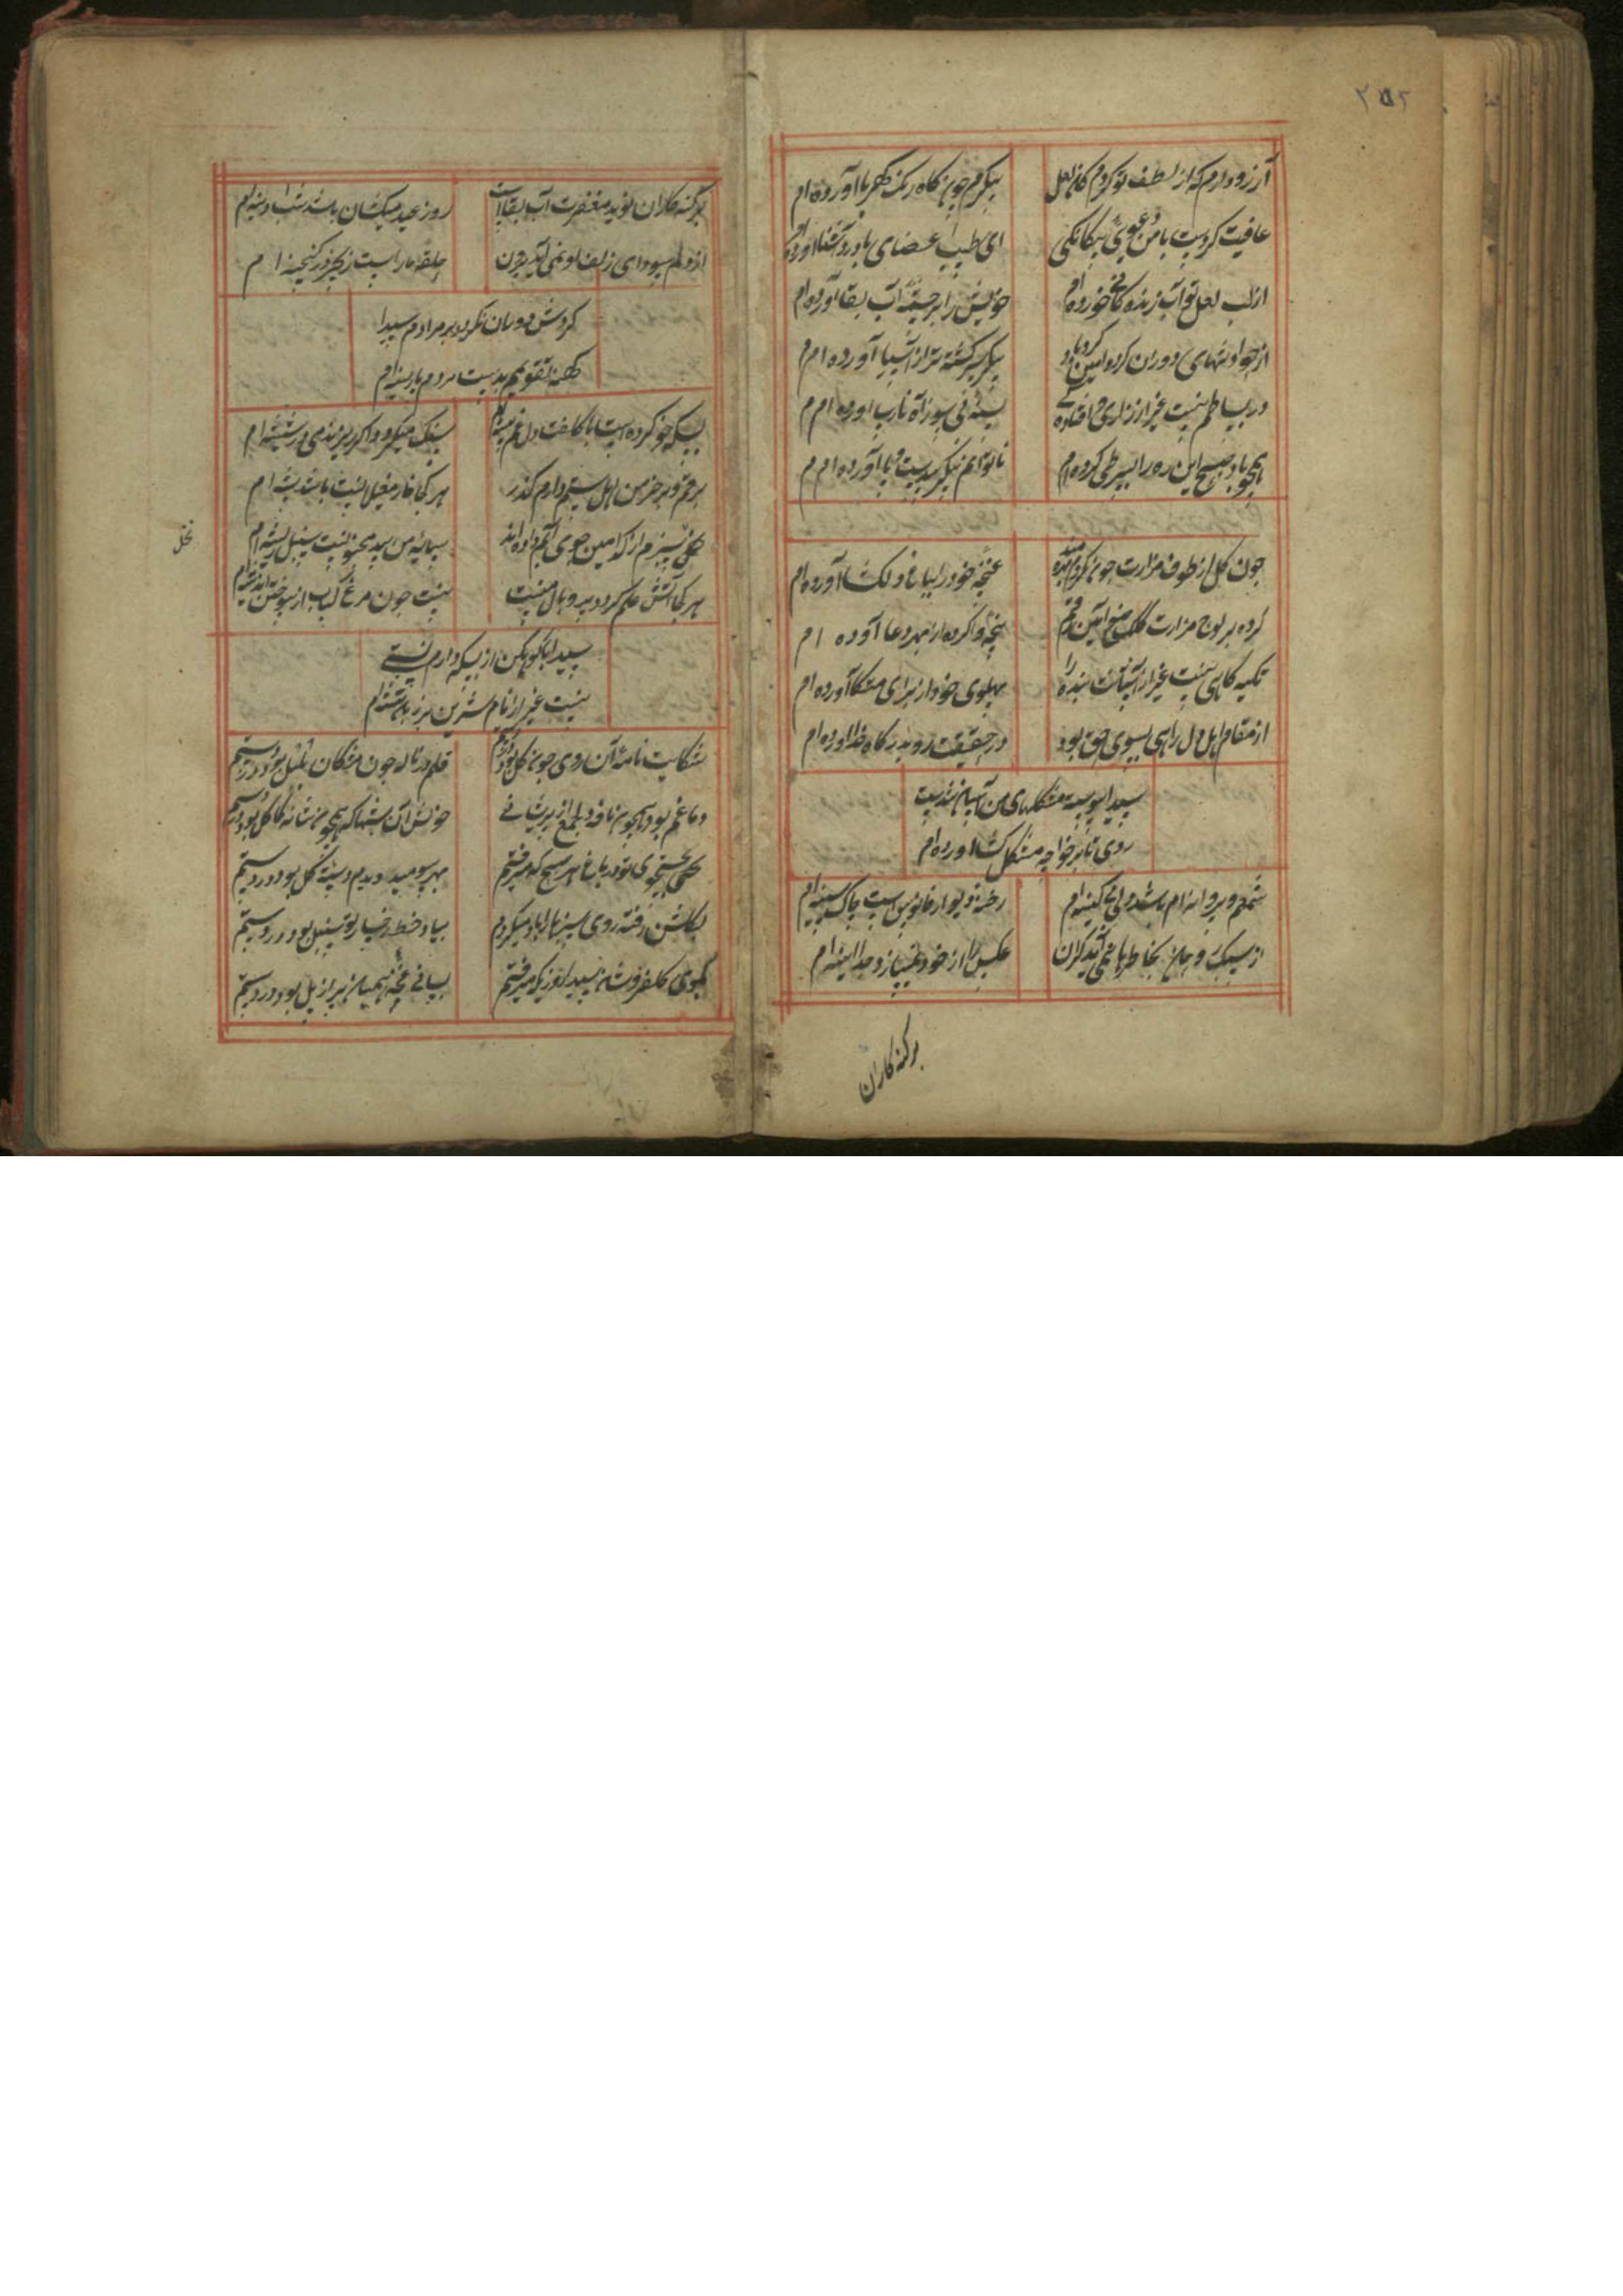 ۲۵۲
آرزو دارم که از لطف تو کردم کان لعل
پیکرم چون کاه رنک کهربا آورده ام
عافیت کردست با من دعوی بیکانکی
ای طبیب اعضای با درد آشنا آورده ام
از لب لعل تو آب زنده کانی خورده ام
خویش را بر چشمه آب بقا آورده ام
از حوادثهای دوران کرده ایمن
پیکر سرکشته تر از آسیا آورده ام
در بساطم نیست غیر از زاری افتاده
سینه نی سوز آه نارسا آورده ام
همچو باد صبح این ره را بسر طی کرده ام
ناتوانم پیکر بیدست و پا آورده ام
چون کل از طوف مزارت چون نکردم
غنچه خود را بباغ دلکشا آورده ام
کرده بر لوح مزارت کلک صنع آمین رقم
پنجه وا کرده از بهر دعا آورده ام
تکیه کاهی نیست غیر از آستانت بنده را
پهلوی خود از برای متکا آورده ام
از مقام اهل دل راهی بسوی حق بود
در حقیقت رو بدرکاه خدا آورده ام
سیدا پیوسته مشکلهای من آسان شدست
روی تا بر خواجه مشکل کشا آورده ام
شمعم و پروانه ام باشد دل بی کینه ام
رخنه دیوار فانوس است چاک سینه ام
از سبک روحان بخاطرها نمی آید کران
عکس را از خود نمیسازد جدا آیینه ام
بر کنه کاران
بر کنه کاران نوید مغفرت آب بقاست
روز عید میکشان باشد شب آدینه ام
از دلم سودای زلف او نمی آید برون
حلقه مار است زنجیر در کنجینه ام
کردش دوران نکردد بر مرادم سیدا
کهنه تقویم بدست مردم پارینه ام
بسکه خو کرده است با کلفت دل غم پیشه ام
سنک میکردد اکر ریزند می در شیشه ام
بر قم و بر خرمن اهل ستم دارم کذر
هر کجا خار مغیلان است باشد بیشه ام
نخل سبزم از کدامین جوی آبم داده اند
سایه من بید مجنونست سنبل ریشه ام
هر کجا آتش علم کردد پر و بال منست
نیست چون مرغ کباب از سوختن اندیشه ام
سیدا با کوهکن از بسکه دارم نسبتی
نیست غیر از نام شیرین بر زبان تیشه ام
شکایت نامه آن روی چون کل بود در دستم
قلم در ناله چون منقار بلبل بود در دستم
دماغم بود همچون نافه دلجمع از پریشانی
خوش آن شبها که همچون شانه کاکل بود در دستم
بجست و جوی تو در باغ هر صبحی که میرفتم
بهر سو میدویدم دسته کل بود در دستم
بکلشن رفته روی سبزها را یاد میکردم
بیاد خط رخسار تو سنبل بود در دستم
بکوی کلفروشان سیدا روزیکه میرفتم
بسان غنچه همیان پر از پل بود در دستم
نخل